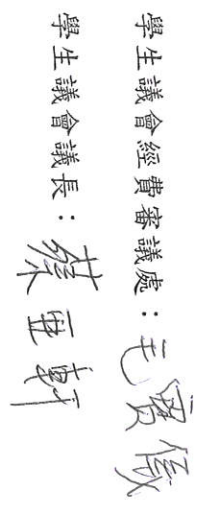 學生議會經費審議處：毛寶儀
學生議會議長：蔡亞軒